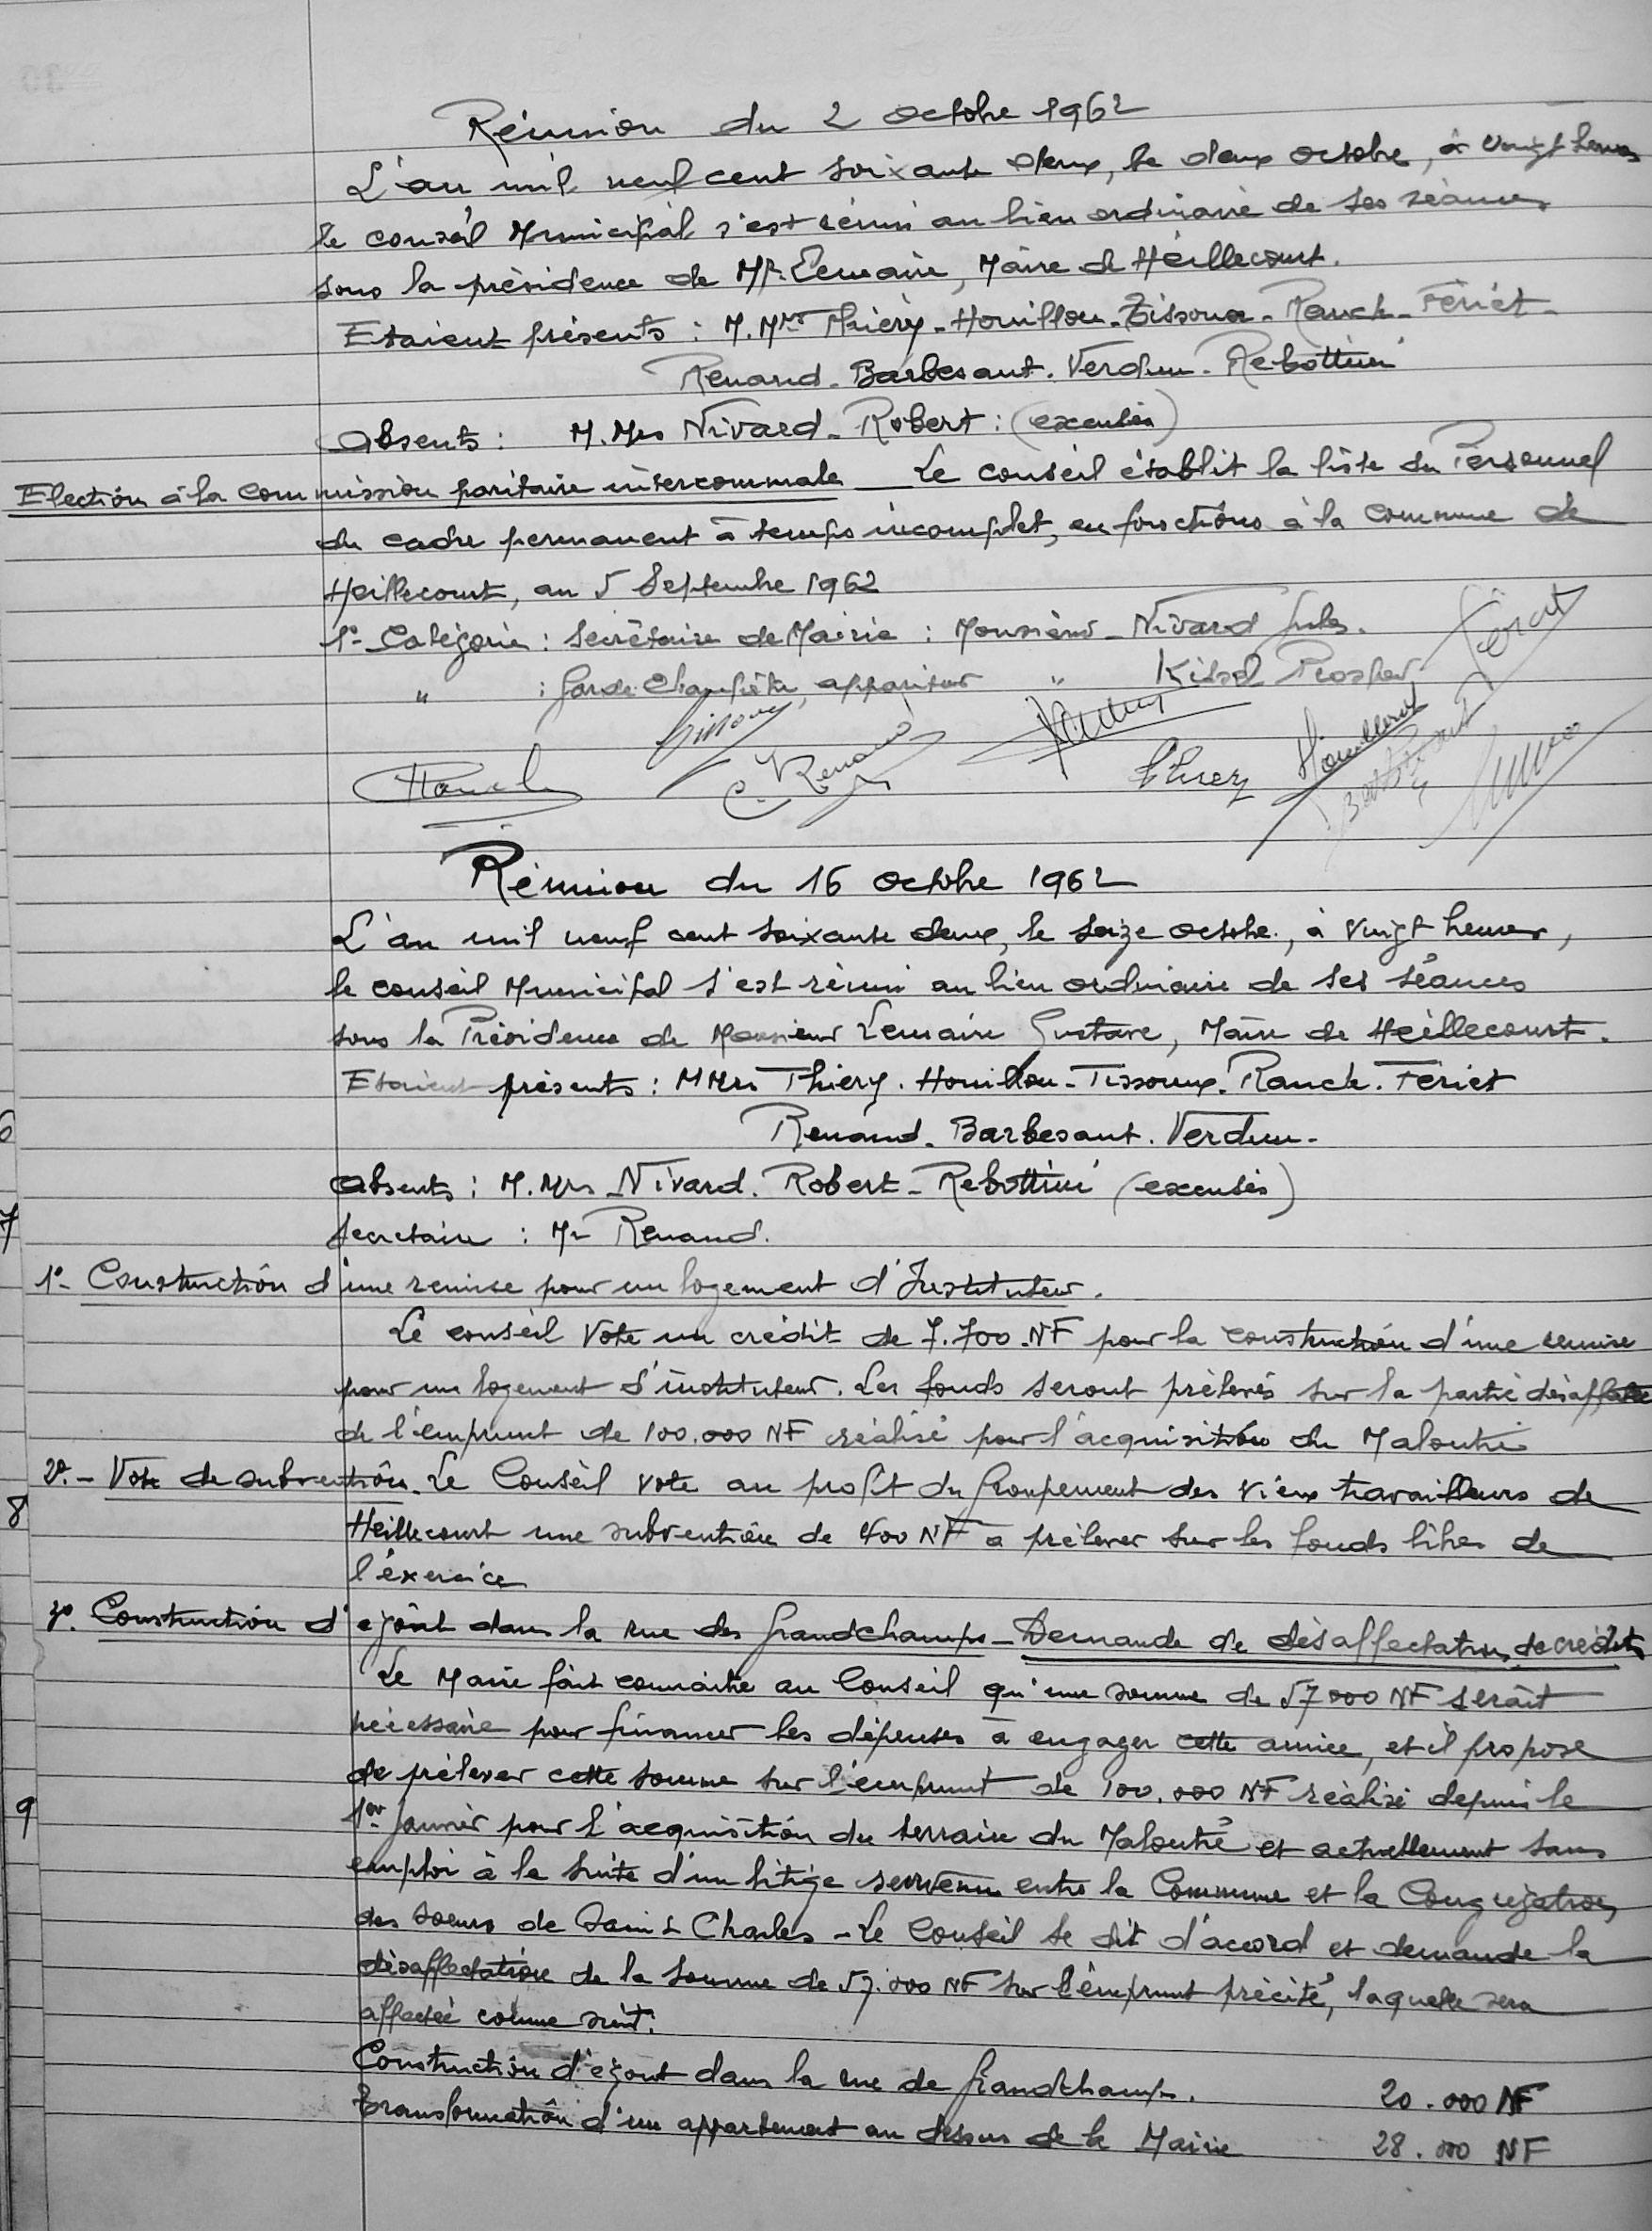 Réunion du 2 octobre 1962
L'an mil neuf cent soixante deux, le deux octobre, à vingt heures
le conseil Municipal s'est réuni au lieu ordinaire de ses séances
sous la présidence de Mr. Lemaire, Maire de Heillecourt.
Etaient présents : M.Mrs Thiéry - Houillon - Tissoux - Rauch - Fériet -
Renaud - Barbesant. Verdun. Rebottini
Absents : M.Mrs Nivard - Robert : (excusés)
Election à la commission paritaire intercommunale Le conseil établit la liste du Personnel
du cadre permanent à temps incomplet, en fonctions à la commune de
Heillecourt, au 5 Septembre 1962
1° - Catégorie : Secrétaire de Mairie : Monsieur - Nivard Jules.
" : Garde Champêtre, appariteur " Prosper
Tissoux
Rauch C. Renaud Verdun Thiery Houillon Barbesant Fériet
Réunion du 16 octobre 1962
L'an mil neuf cent soixante deux, le seize octobre, à vingt heures,
le conseil Municipal s'est réuni au lieu ordinaire de ses séances
sous la Présidence de Monsieur Lemaire Gustave, Maire de Heillecourt.
Etaient présents : MMrs Thiéry. Houillon - Tissoux. Rauch. Fériet
Renaud - Barbesant. Verdun -
Absents : M.Mrs Nivard. Robert - Rebottini (excusés)
Secretaire : Mr Renaud.
1° - Construction d'une remise pour un logement d'Instituteur.
Le conseil vote un crédit de 7.700 NF pour la construction d'une remise
pour un logement d'instituteur. Les fonds seront prélevés sur la partie désaffectée
de l'emprunt de 100.000 NF réalisé pour l'acquisition du Maloutié
2° - Vote de subvention. Le Conseil vote au profit du Groupement des vieux travailleurs de
Heillecourt une subvention de 400 NF à prélever sur les fonds libres de
l'éxercice
3°. Construction d'egoût dans la rue des Grandchamps - Demande de désaffectation de crédits
Le Maire fait connaitre au Conseil qu'une somme de 57000 NF serait
nécessaire pour financer les dépenses à engager cette année, et il propose
de prélever cette somme sur l'emprunt de 100.000 NF réalisé depuis le
1er Janvier pour l'acquisition du terrain du Maloutié et actuellement sans
emploi à la suite d'un litige survenu entre la Commune et la Congrégation
des soeurs de Saint Charles - Le Conseil se dit d'accord et demande la
désaffectation de la somme de 57.000 NF sur l'emprunt précité, laquelle sera
affectée comme suit :
Construction d'égout dans la rue de Grandchamps. 20.000 NF
Transformation d'un appartement au dessus de la Mairie 28.000 NF
6
7
8
9